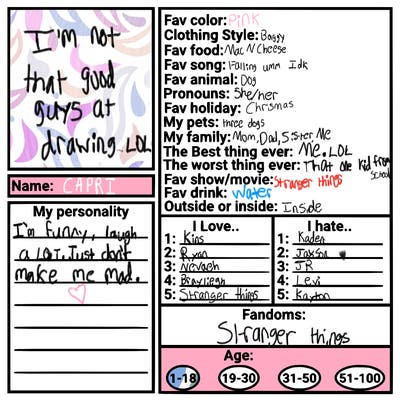 I'm not
that good
guys at
drawing LOL
Name: CAPRI
My personality
I'm funny, laugh
a LOT. Just don't
make me mad.
Fav color: Pink
Clothing Style: Baggy
Fav food: Mac N Cheese
Fav song: Falling umm Idk
Fav animal: Dog
Pronouns: She/her
Fav holiday: Chrismas
My pets: three dogs
My family: Mom, Dad, Sister Me
The Best thing ever: Me. LOL
The worst thing ever: That one kid from
School
Fav show/movie: Stranger things
Fav drink: water
Outside or inside: Inside
I Love..
1: Kins
2: Ryan
3: Nevaeh
4: Brayliegh
5: Stranger things
I hate..
1: Kaden
2: Jaxson
3: JR
4: Levi
5: Kayton
Fandoms:
Stranger things
Age:
1-18 19-30 31-50 51-100